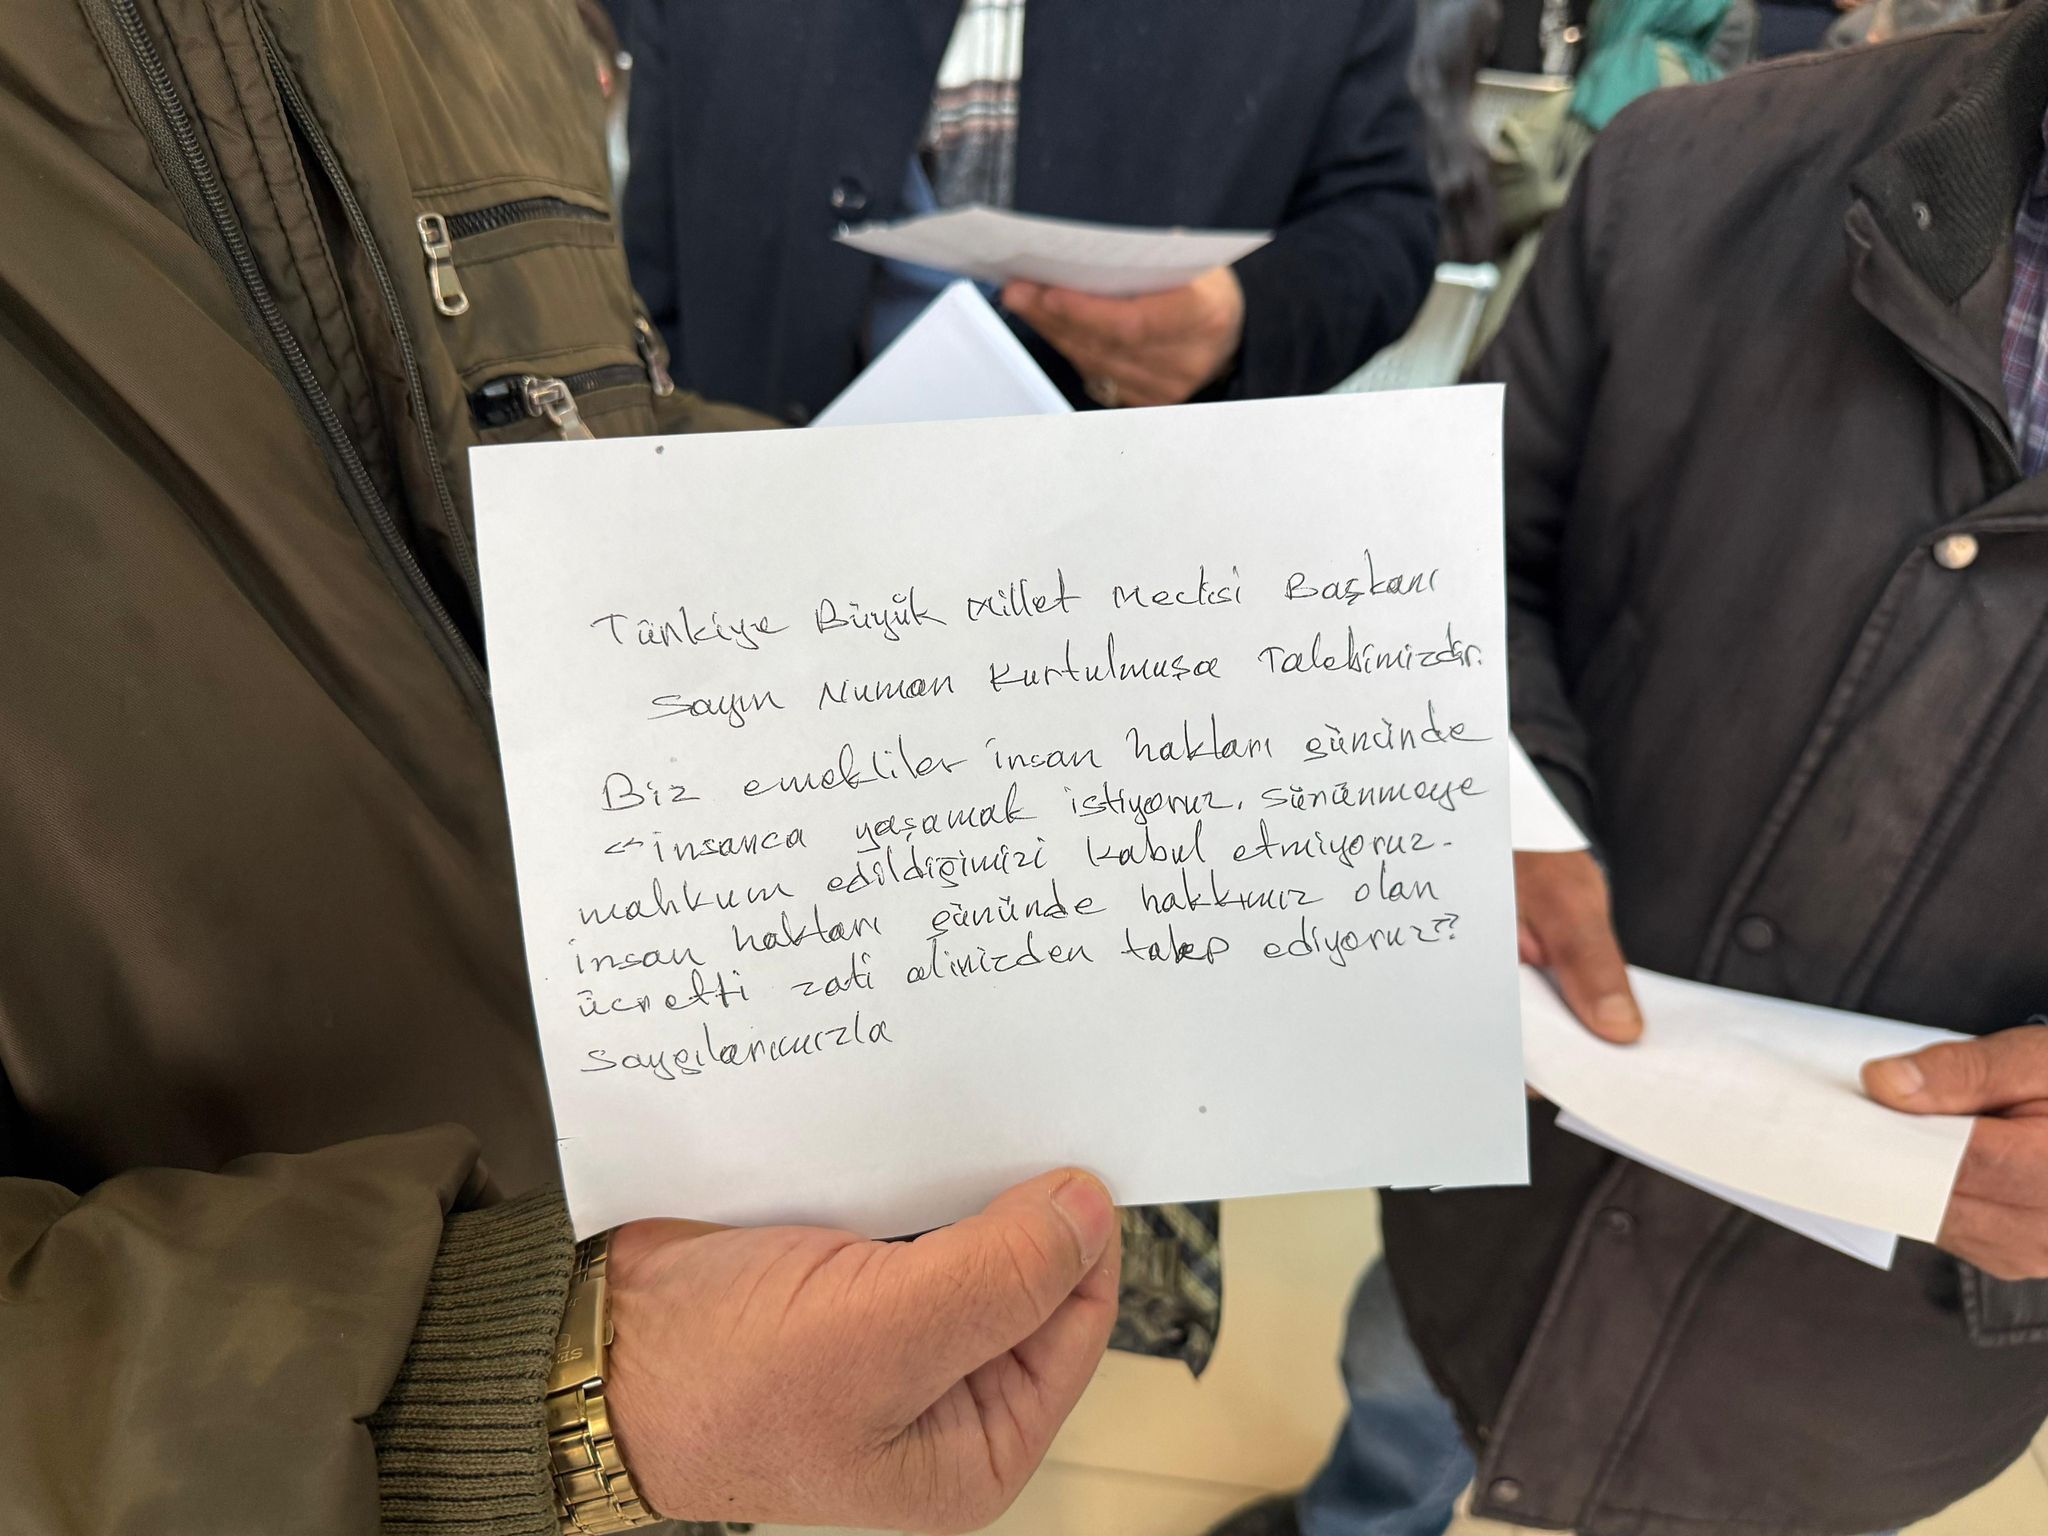 Türkiye Büyük Millet Meclisi Başkanı
Sayın Numan Kurtulmuşa Talebimizdir.
Biz emekliler insan hakları gününde
"insanca yaşamak istiyoruz. Sürünmeye
mahkum edildiğimizi kabul etmiyoruz.
insan hakları gününde hakkımız olan
ücretti zati alinizden talep ediyoruz"
Saygılarımızla
SE